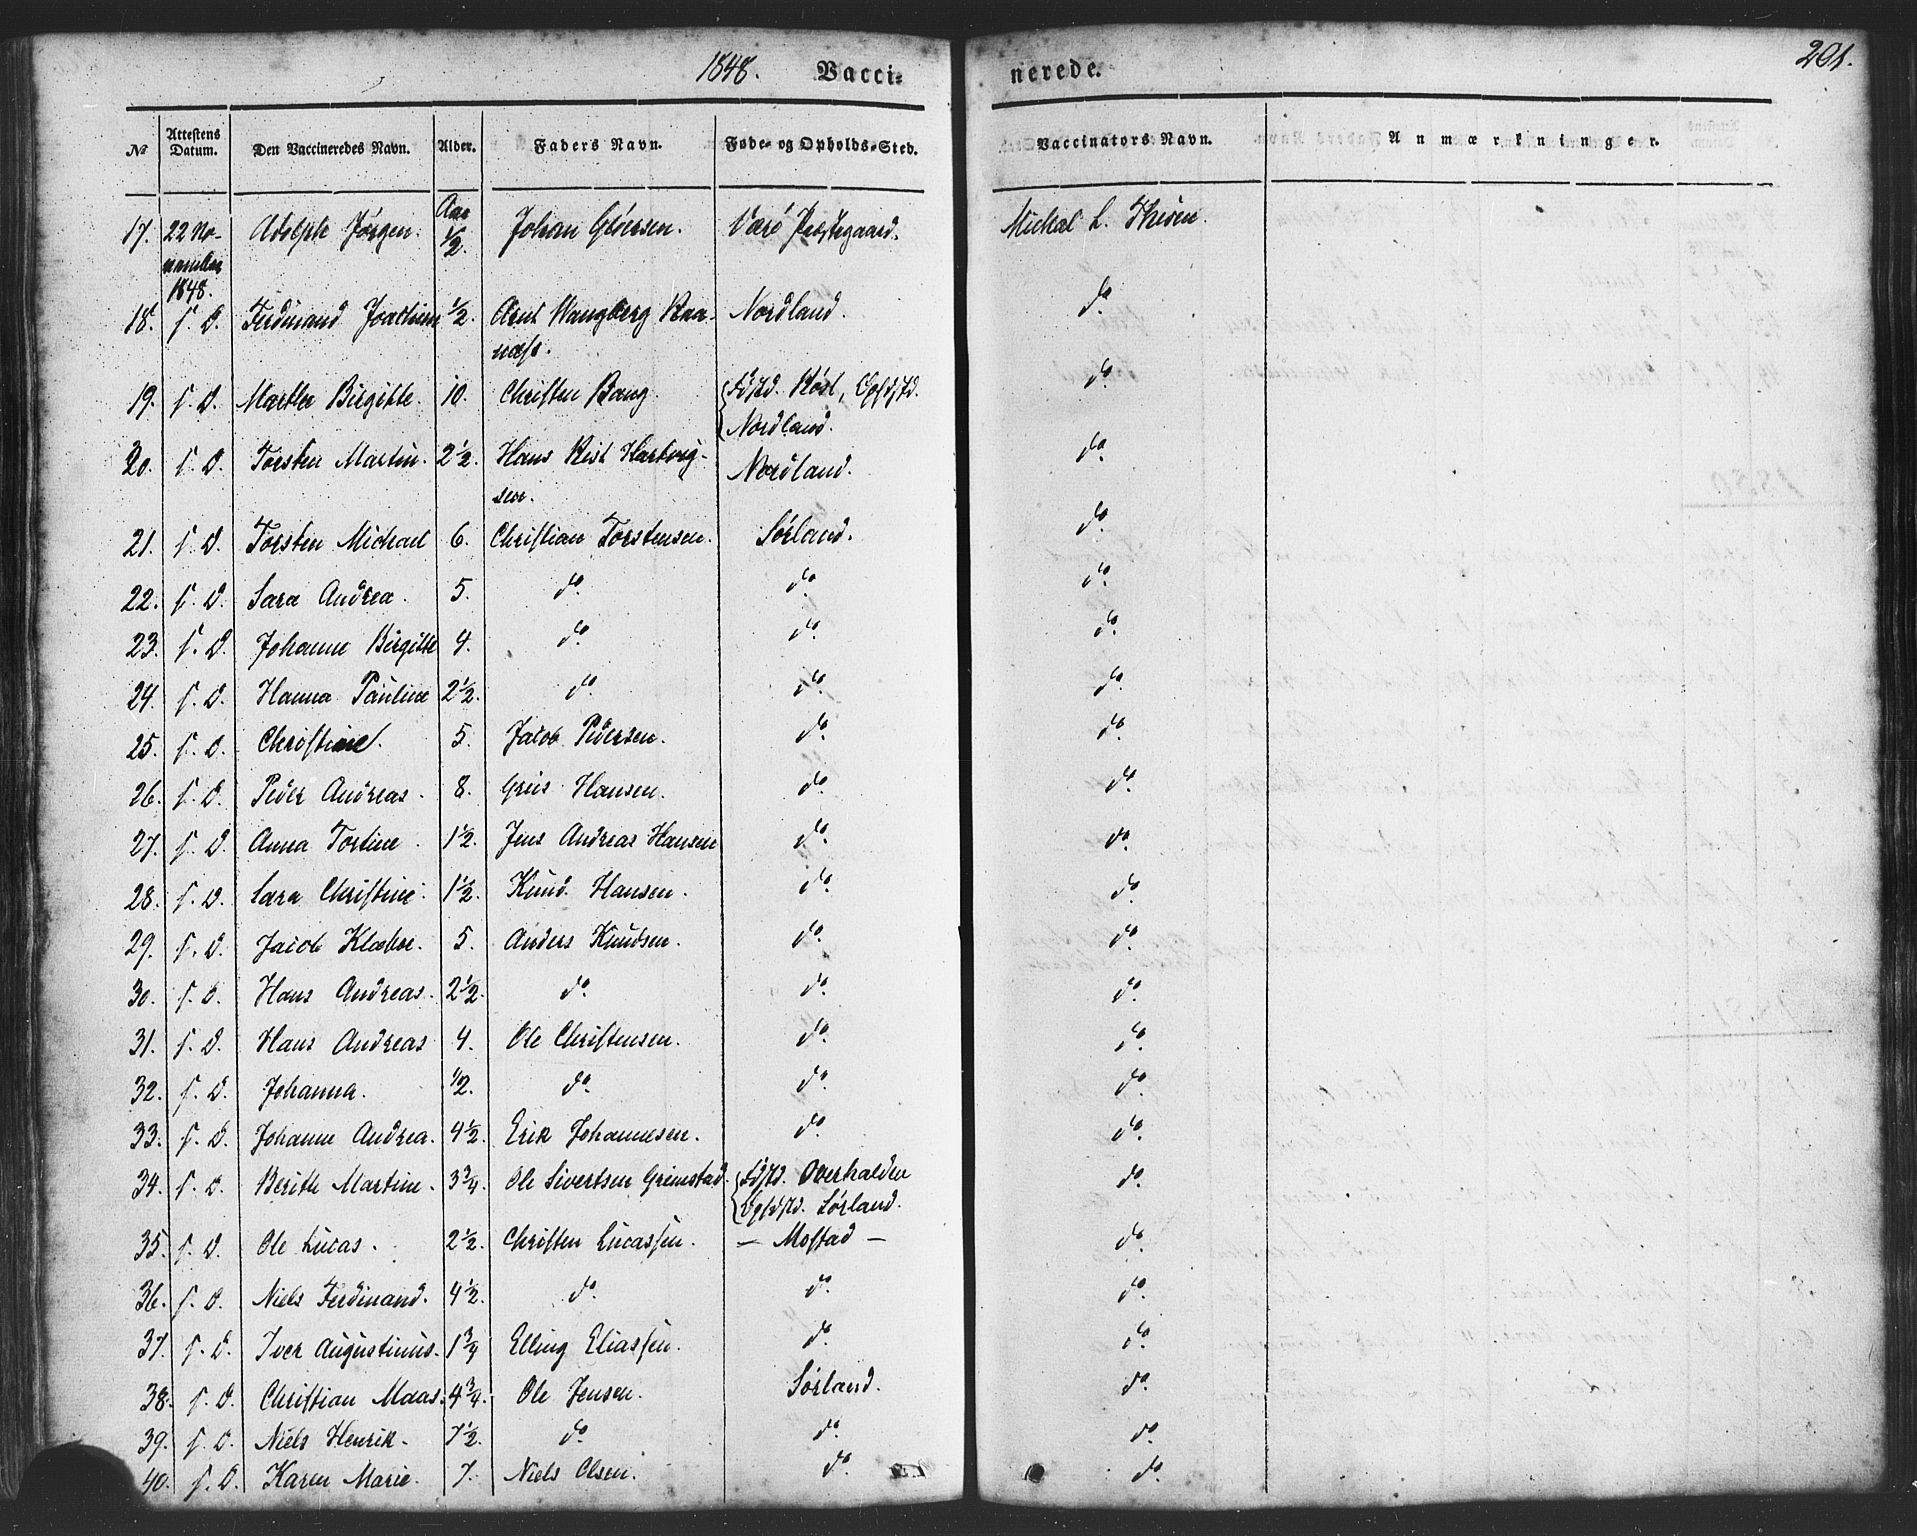 1848. Vacci- nerede. 201.
No Attestens Datum. Den Vaccineredes Navn. Alder. Faders Navn. Føde- og Opholds-Sted. Vaccinators Navn. Anmærkninger.
17. 22 No- Adolph Jørgen. Aar 1/2. Johan Gløersen. Værø Præstegaard. Michal L. Thesen.
vember
1848.
18. s. D. Ferdinand Joachim 1/2. Arnt Wangberg Raa- Nordland. do.
næss.
19. s. D. Marthe Birgitte 10. Christen Bang. Fdstd. Røst, Opfdstd. do.
Nordland.
20. s. D. Torsten Martin. 2 1/2. Hans Rist Hartvig- Nordland. do.
sen.
21. s. D. Torsten Michael 6. Christian Torstensen. Sørland. do.
22. s. D. Sara Andrea. 5. do. do. do.
23. s. D. Johanne Birgitte 4. do. do. do.
24. s. D. Hanna Pauline 2 1/2. do. do. do.
25. s. D. Christine. 5. Jacob Pedersen. do. do.
26. s. D. Peder Andreas. 8. Greis Hansen. do. do.
27. s. D. Anna Tortine. 1 1/2. Jens Andreas Hansen do. do.
28. s. D. Sara Christine. 1 1/2. Knud Hansen. do. do.
29. s. D. Jacob Klæboe. 5. Anders Knudsen. do. do.
30. s. D. Hans Andreas. 2 1/2. do. do. do.
31. s. D. Hans Andreas 4. Ole Christensen. do. do.
32. s. D. Johanna. 1/2. do. do. do.
33. s. D. Johanne Andrea. 4 1/2. Erik Johannesen. do. do.
34. s. D. Berith Martine. 3 3/4. Ole Sivertsen Grimstad. Fdstd. Overhalden do.
Opfdstd. Sørland.
35. s. D. Ole Lucas. 2 1/2. Christen Lucassen. — Mostad — do.
36. s. D. Niels Ferdinand. 4 1/2. do. do. do.
37. s. D. Iver Augustinus. 1 3/4 Elling Eliassen. do. do.
38. s. D. Christian Maas. 4 3/4. Ole Jensen. Sørland. do.
39. s. D. Niels Henrik. 7 1/2. do. do. do.
40. s. D. Karen Marie. 7. Niels Olsen. do. do.